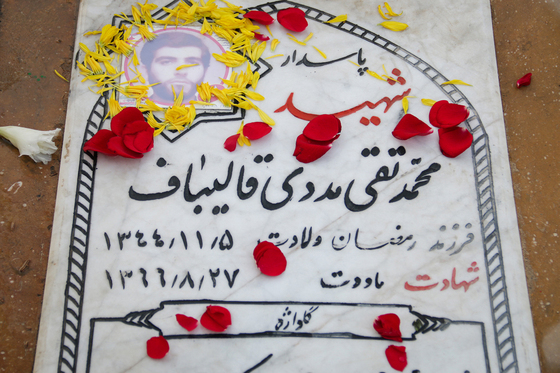 پاسدار
شهید
محمّد تقی مددی قالیباف
فرزند رمضان ولادت ۱۳۴۴/۱۱/۵
شهادت ماووت ۱۳۶۶/۸/۲۷
گلواژه